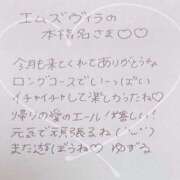 エムズヴィラの
本指名さま♡♡
今月も来てくれてありがとうな
ロングコースでい〜っぱい
イチャイチャして楽しかったね♡
帰りの愛のエール!嬉しい!
元気で頑張るね(˶ᵕ˶)
また遊ぼうね♡ ゆずる